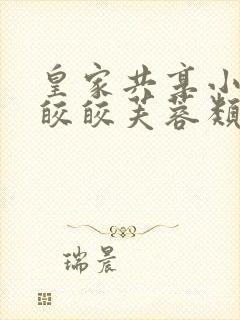 皇家共享小
皎皎芙蓉颓
瑞晨